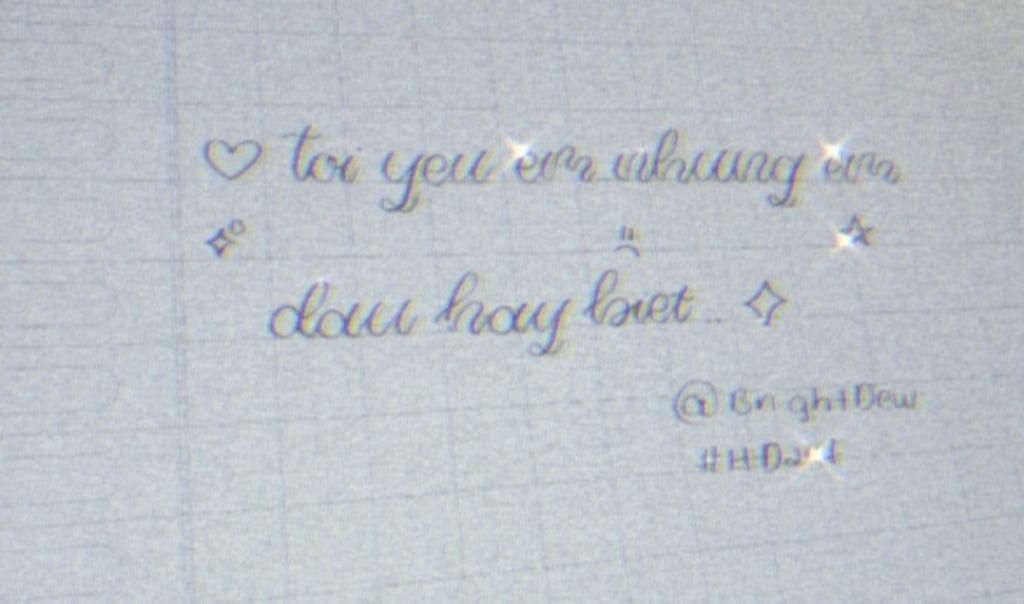 ♡ toi yeu em nhung em
dau hay biet...
@BrightDew